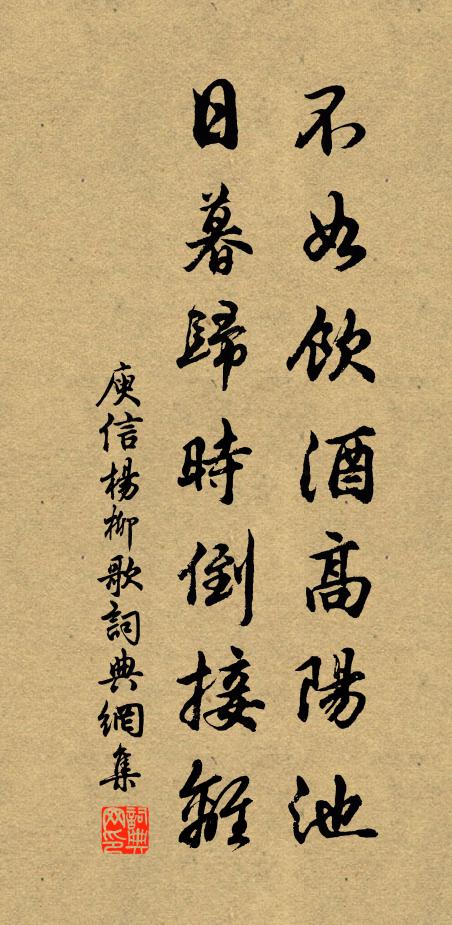 不如飲酒高陽池
日暮歸時倒接離
庾信楊柳歌詞典網集
詞典網印